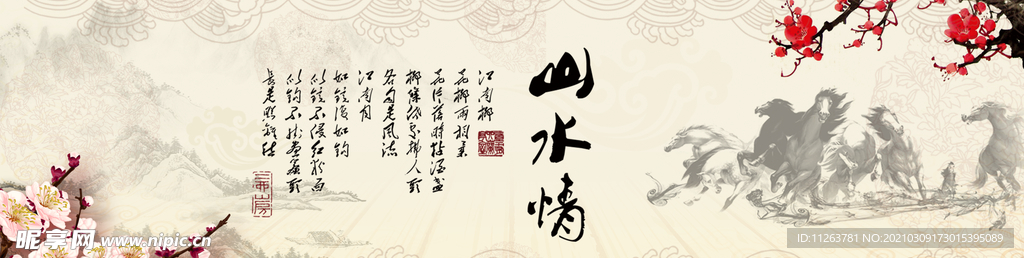 山水情
江南柳
花柳两相柔
花片落时黏酒盏
柳条低处拂人头
各自是风流
江南月
如镜复如钩
似镜不侵红粉面
似钩不挂画帘头
长是照离愁
昵享网 www.nipic.cn
ID:11263781 NO:20210309173015395089